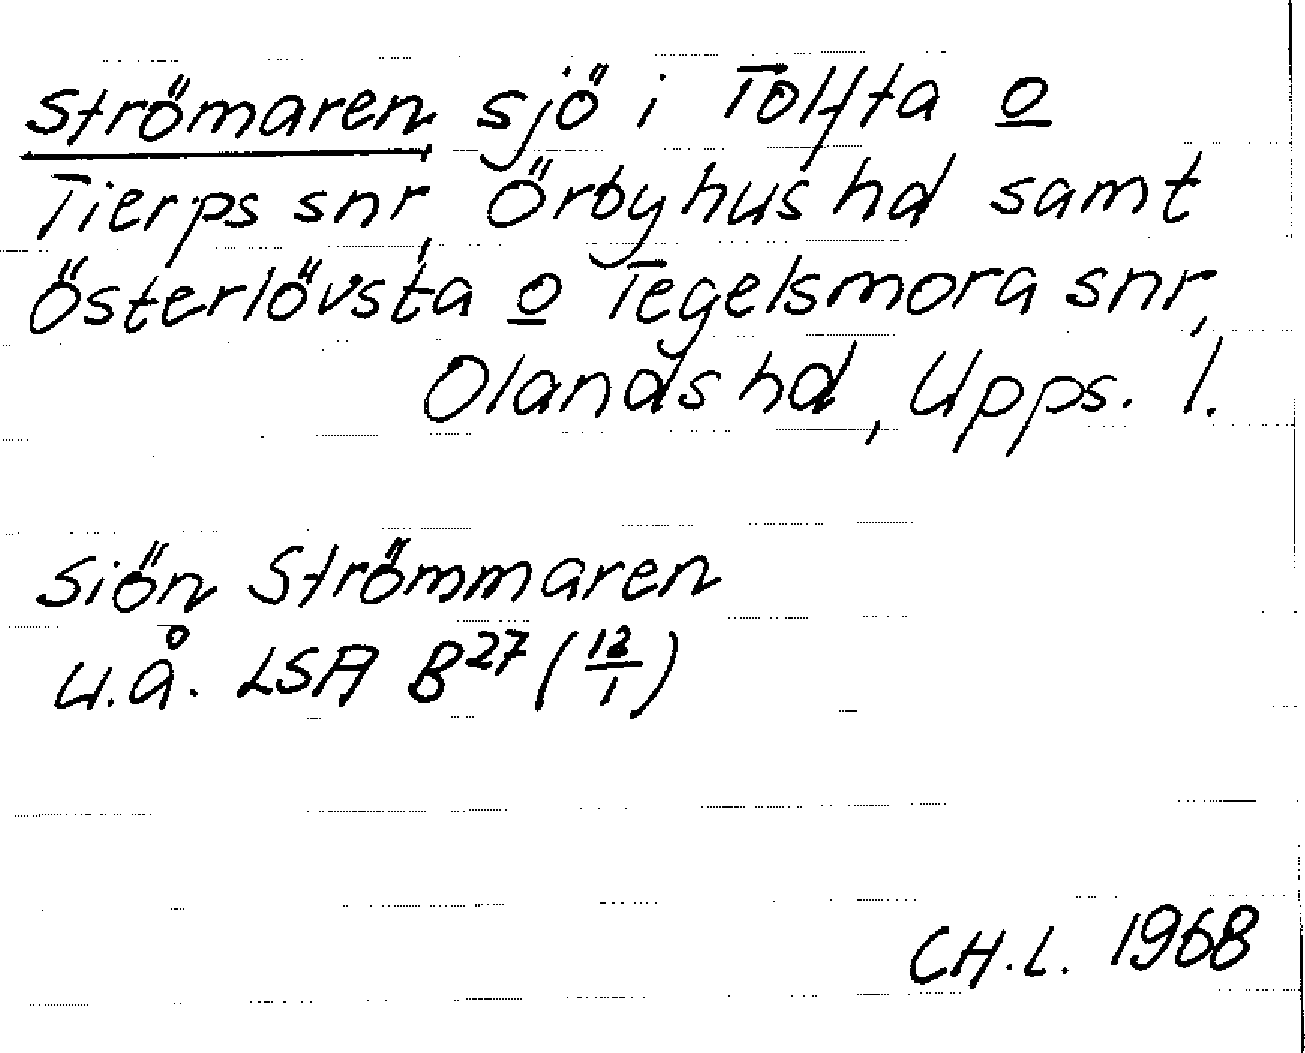 Strömaren, sjö i Tolfta o
Tierps snr, Örbyhus hd samt
Österlövsta o Tegelsmora snr,
Olands hd, Upps. l.
Siön Strömmaren
u.å. LSA B27 (12/1)
CH.L. 1968